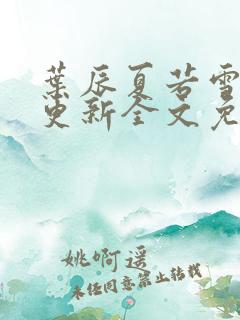 葉辰夏若雪
更新全文免
姚啊遥
未经同意禁止转载